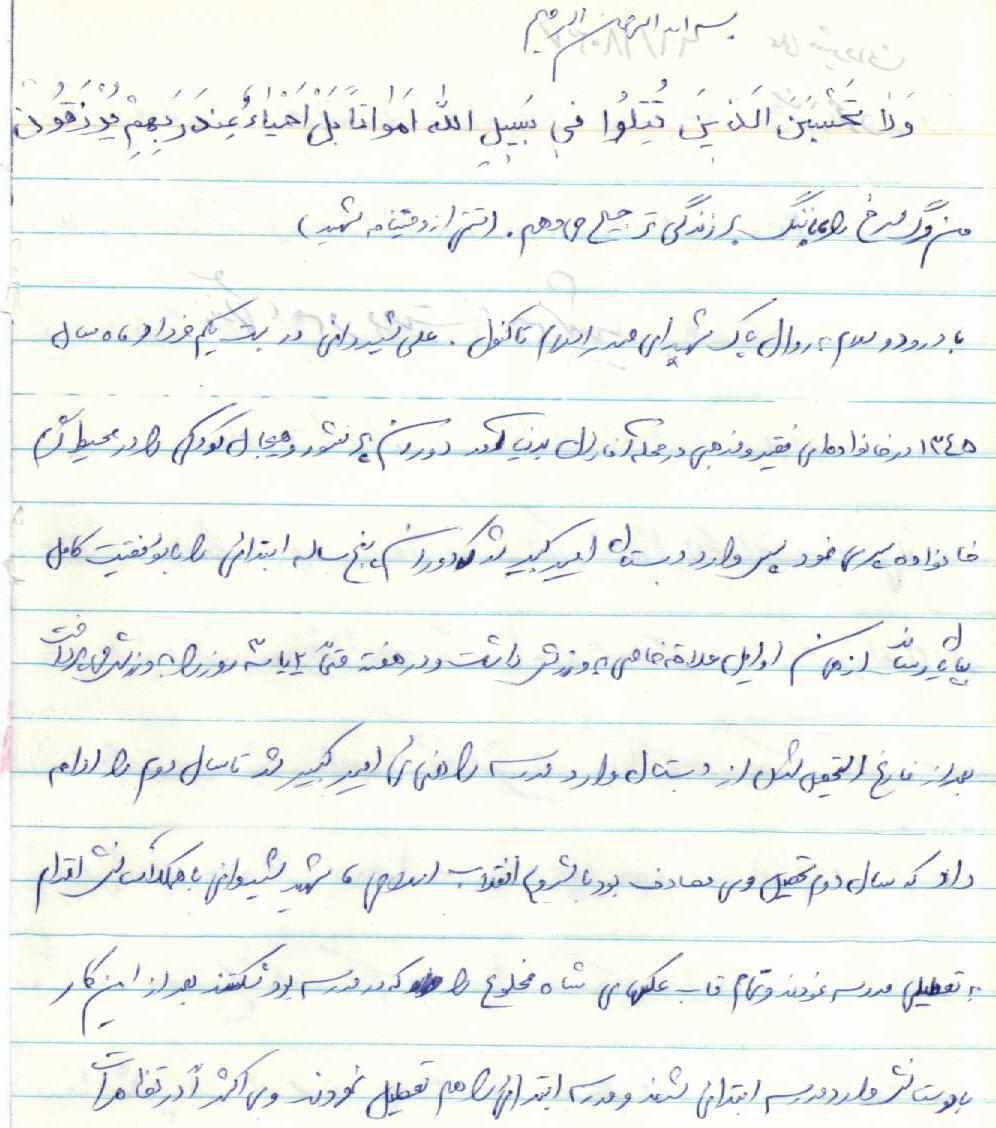 بسم الله الرحمن الرحیم
وَلا تَحْسَبَنَّ الَّذینَ قُتِلُوا فی سَبیلِ اللهِ اَمْواتاً بَلْ اَحْیاءٌ عِندَ رَبِهِمْ یُرْزَقُونَ
من مرگ سرخ را به زندگی ترجیح می دهم. (متن از وصیتنامه شهید)
با درود و سلام به روان پاک شهیدای صدر اسلام تاکنون. علی شیروانی در بیست یکم خرداد ماه سال
۱۳۴۵ در خانواده ای فقیر و مذهبی در محله بدنیا آمد دوران پر شور و هیجان کودکی را در محیط گرم
خانواده سپری نمود سپس وارد دبستان امیرکبیر شد که دوران پنج ساله ابتدائی را با موفقیت کامل
بپایان رساند از همان اوایل علاقه خاصی به ورزش داشت و در هفته ۲ یا سه روز را به ورزش می پرداخت
بعد از فارغ التحصیل شدن از دبستان وارد مدرسه راهنمائی امیر کبیر شد تا سال دوم را ادامه
داد که سال دوم تحصیل وی مصادف بود با شروع انقلاب اسلامی شهید شیروانی با اقدام
به تعطیلی مدرسه نمودند و تمام قاب عکسهای شاه مخلوع را که در مدرسه بود شکستند بعد از این کار
با دوستانش وارد مدرسه ابتدائی شدند و مدرسه ابتدائی را هم تعطیل نمودند وی اکثراً در تظاهرات